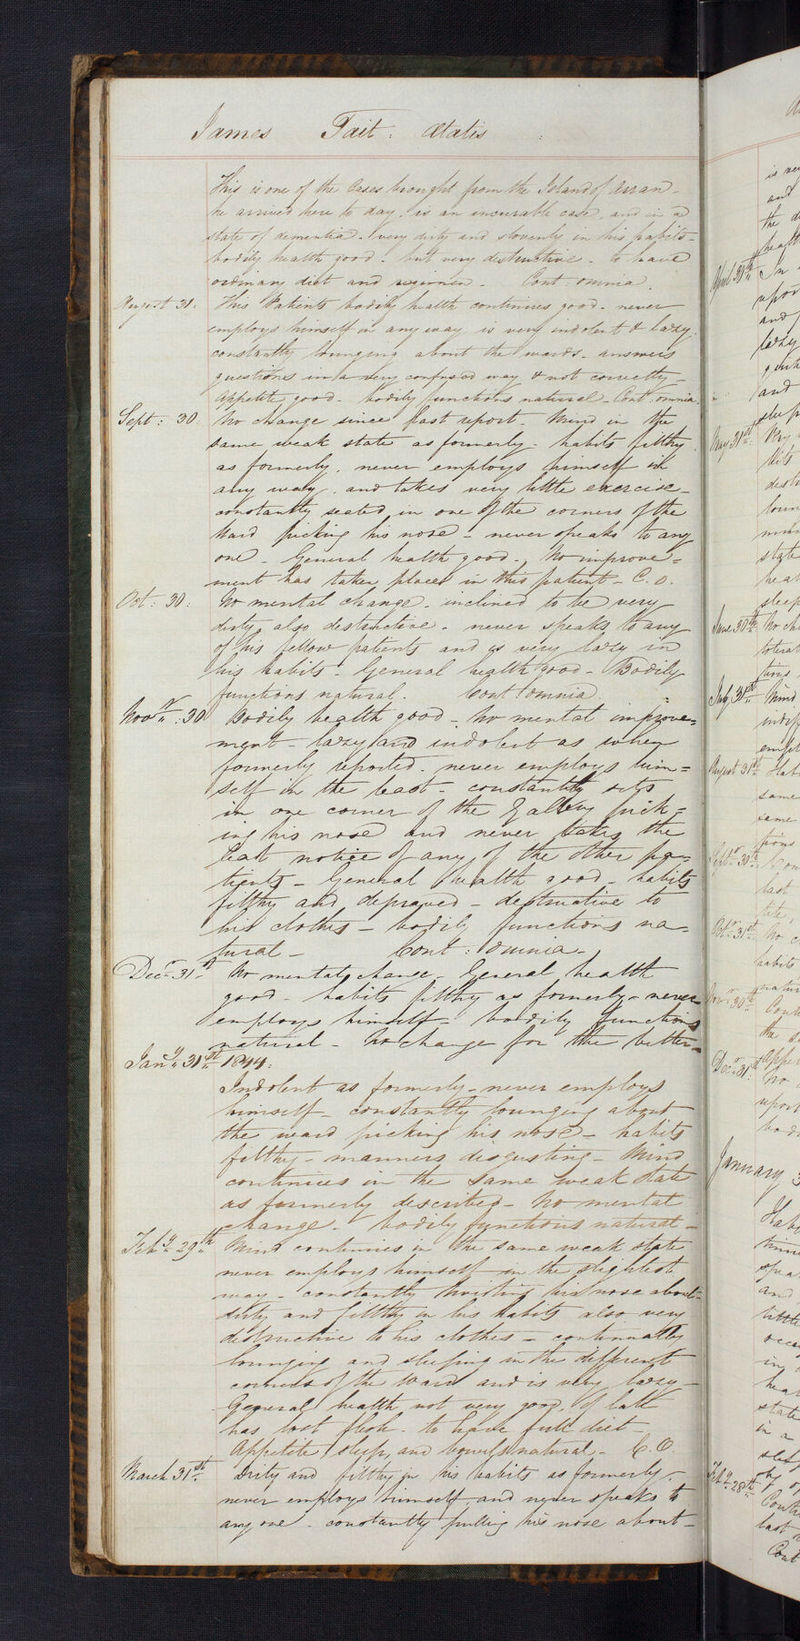 James Tait: Ætatis :
This is one of the Cases brought from the Island of Arran -
he arrived here to day. as an incurable case, and in a
state of dementia. very dirty and slovenly in his habits -
bodily health good. but very destructive. to have
ordinary diet and regimen. Cont omnia.
August 31. This Patients bodily health continues good. never
employs himself in any way is very indolent & lazy.
constantly lounging about the wards. answers
questions in a very confused way & not correctly -
Appetite good. bodily functions natural - Cont omnia.
Sept: 30. No change since last report. Mind in the
same weak state as formerly. habits filthy
as formerly. never employs himself in
any way. and takes very little exercise -
constantly seated in one of the corners of the
Ward picking his nose - never speaks to any
one - General health good. No improve=
ment has taken place in this patient - C. O.
Oct: 30: No mental change. inclined to be very
dirty also destructive. never speaks to any
of his fellow patients and is very lazy in
his habits. General health good - Bodily
functions natural. Cont omnia.
Novr: 30 Bodily health good - No mental improve=
ment - lazy and indolent as when
formerly reported. never employs him=
self in the least - constantly sits
in one corner of the Gallery pick=
ing his nose and never takes the
least notice of any of the other pa=
tients - General health good - habits
filthy and depraved - destructive to
his clothes - bodily functions na=
tural - Cont: omnia -
Decr 31st No mental change. General health
good - habits filthy as formerly - never
employs himself - bodily functions
natural - No change for the better -
Jany 31st 1844:
Indolent as formerly - never employs
himself - constantly lounging about
the ward picking his nose - habits
filthy - manners disgusting - Mind
continues in the same weak state
as formerly described - No mental
change - bodily functions natural -
Feby 29th Mind continues in the same weak state
never employs himself in the slightest
way - constantly twisting his nose about -
dirty and filthy in his habits also very
destructive to his clothes - continually
lounging and sleeping in the different
corners of the Ward and is very lazy -
General health not very good. Of late
has lost flesh. to have full diet -
Appetite sleep, and bowels natural - C. O.
March 31st Dirty and filthy in his habits as formerly -
never employs himself and never speaks to
any one - constantly pulling his nose about -
is
and
the
April 30th In
and
lazy
and
sleep
May 31st
state
sleep
June 30th No
July 31st Mind
August 31st
same
same
Sept 30th
last
Octr 31st No
habits
Novr 30th
the
Decr 31 No
January
and
little
state
in a
Feby 28th
last
Cont